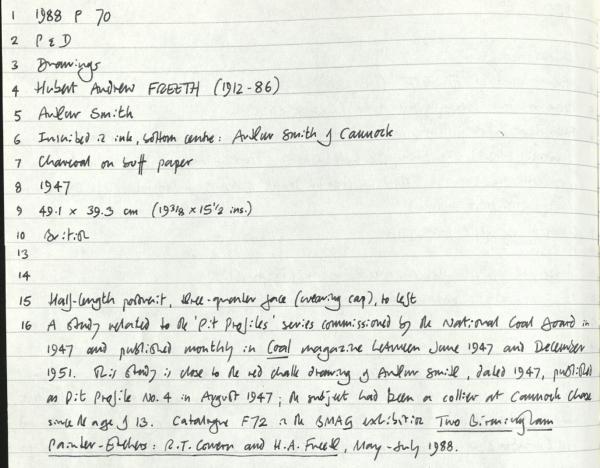 1 1988 P 70
2 P & D
3 Drawings
4 Hubert Andrew FREETH (1912-86)
5 Arthur Smith
6 Inscribed in ink, bottom centre: Arthur Smith of Cannock
7 Charcoal on buff paper
8 1947
9 49.1 x 39.3 cm (19 3/8 x 15 1/2 ins.)
10 British
13
14
15 Half-length portrait, three-quarter face (wearing cap), to left
16 A study related to the 'Pit Profiles' series commissioned by the National Coal Board in
1947 and published monthly in Coal magazine between June 1947 and December
1951. This study is close to the red chalk drawing of Arthur Smith, dated 1947, published
as Pit Profile No. 4 in August 1947; the subject had been a collier at Cannock Chase
since the age of 13. Catalogue F72 in the BMAG exhibition Two Birmingham
Painter-Etchers: R.T. Cowern and H.A. Freeth, May-July 1988.